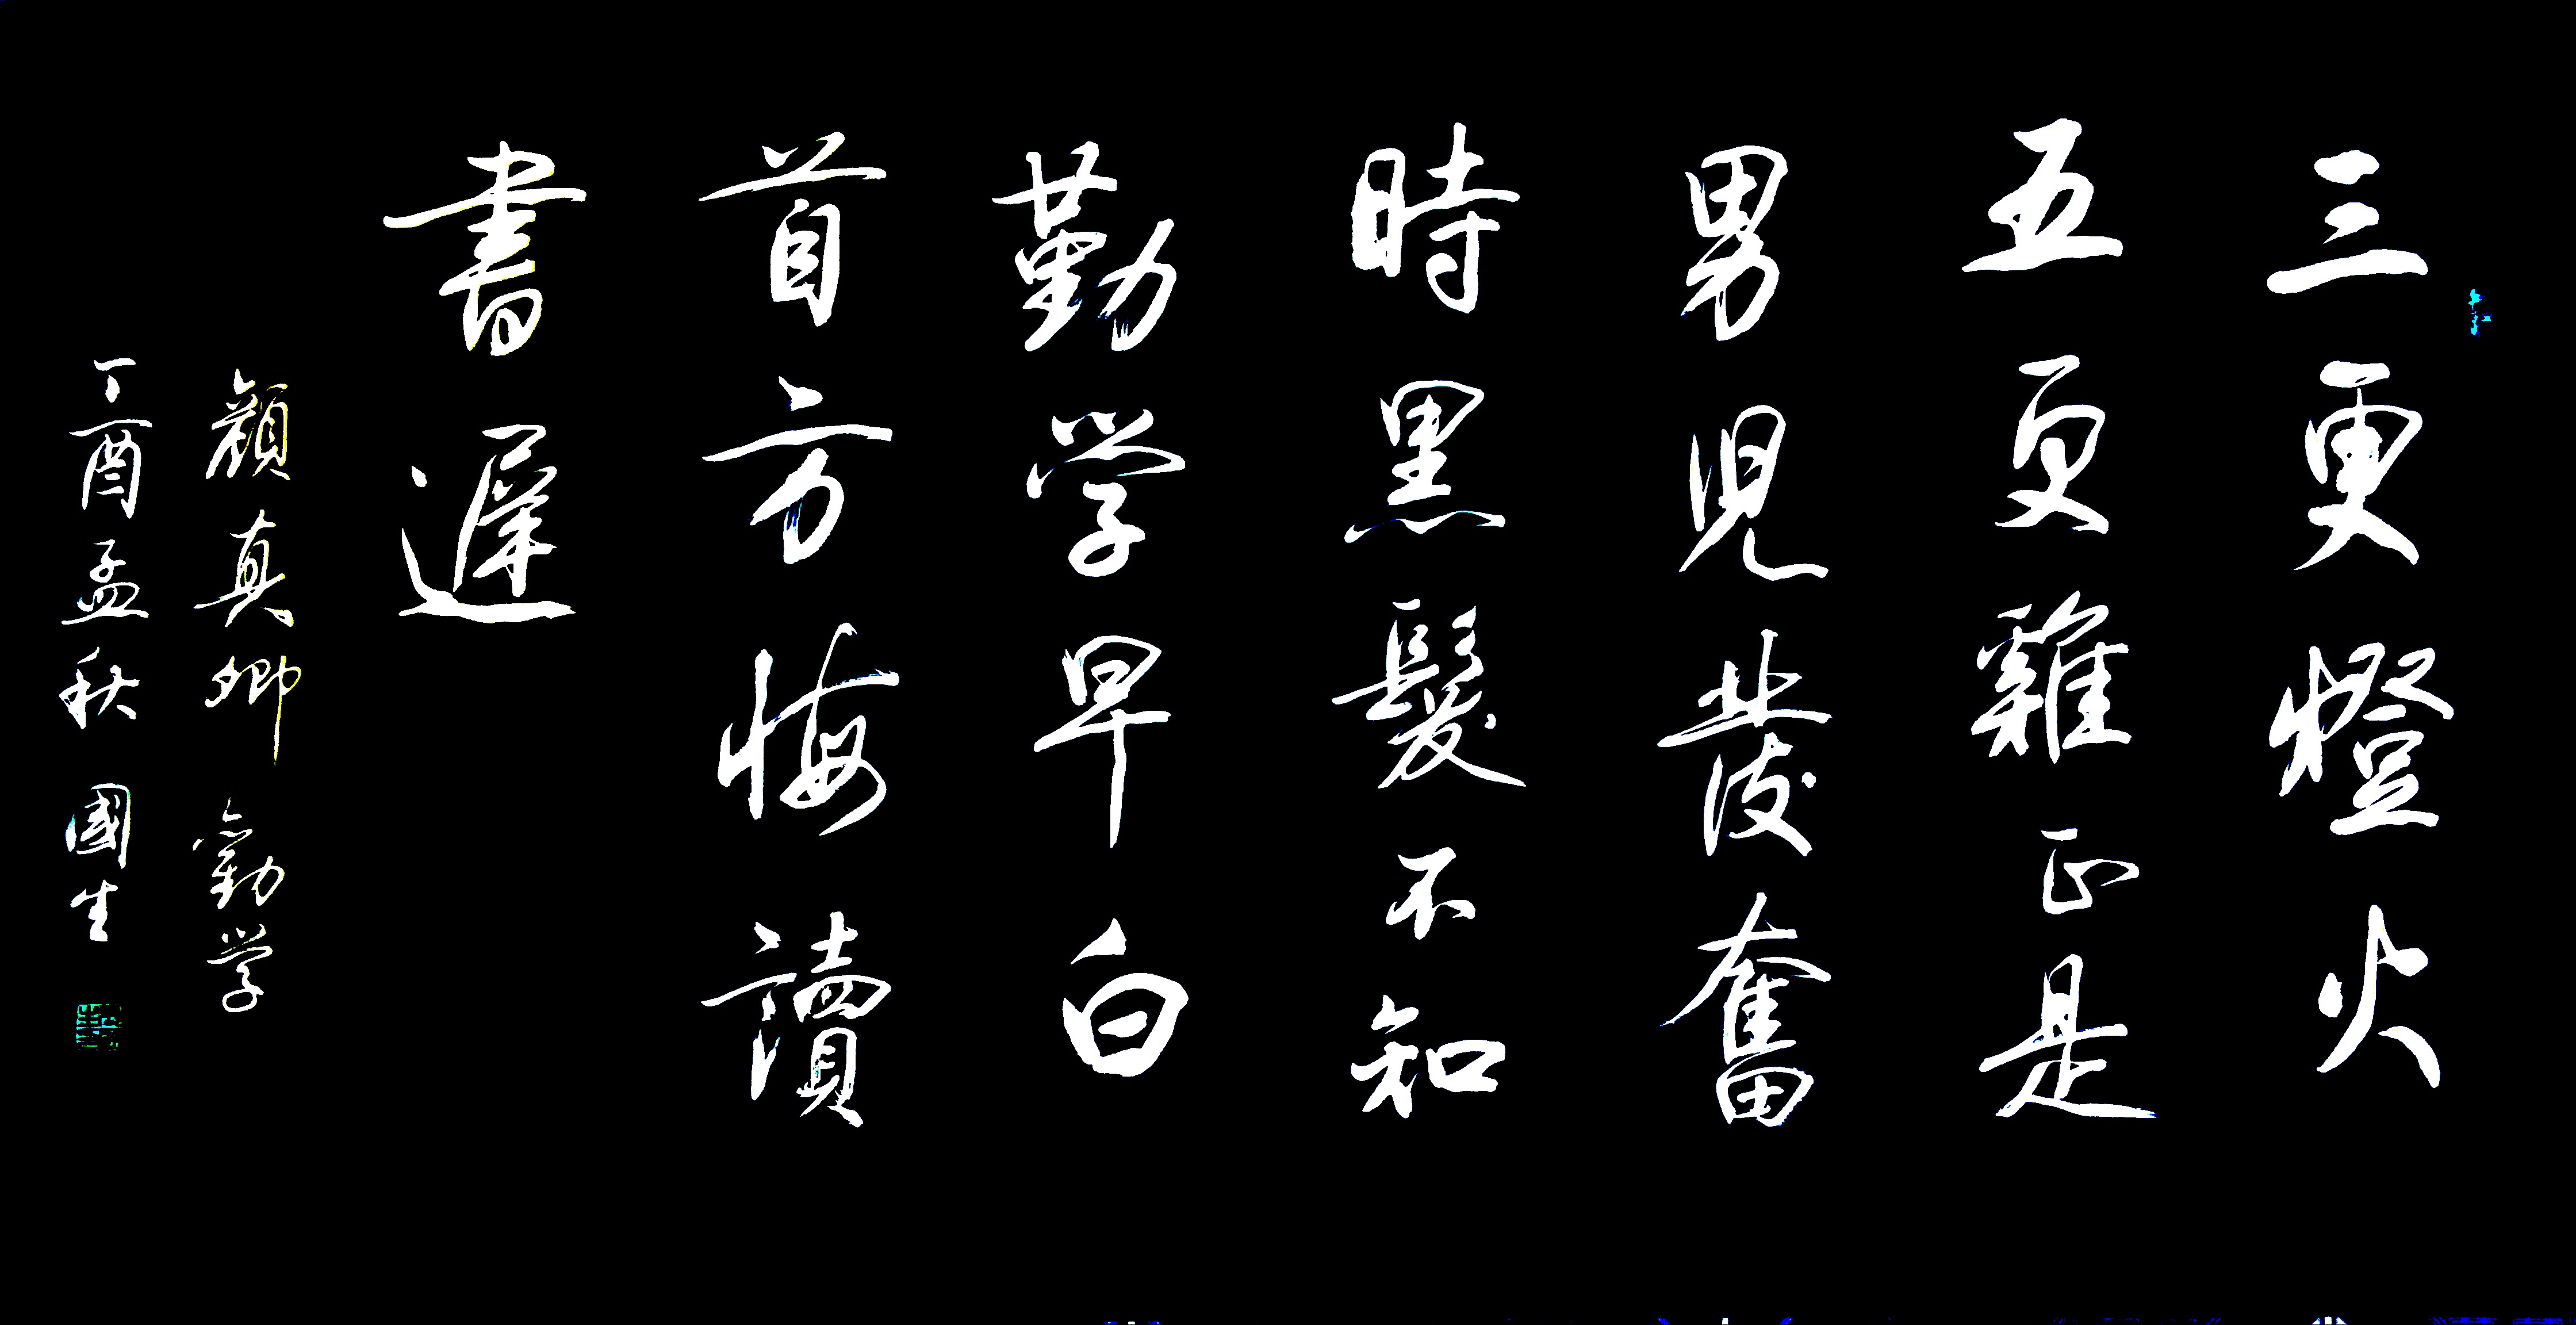 三更燈火
五更雞正是
男児發奮
時黑髮不知
勤学早白
首方悔讀
書遲
顏真卿 勸学
丁酉孟秋 國生